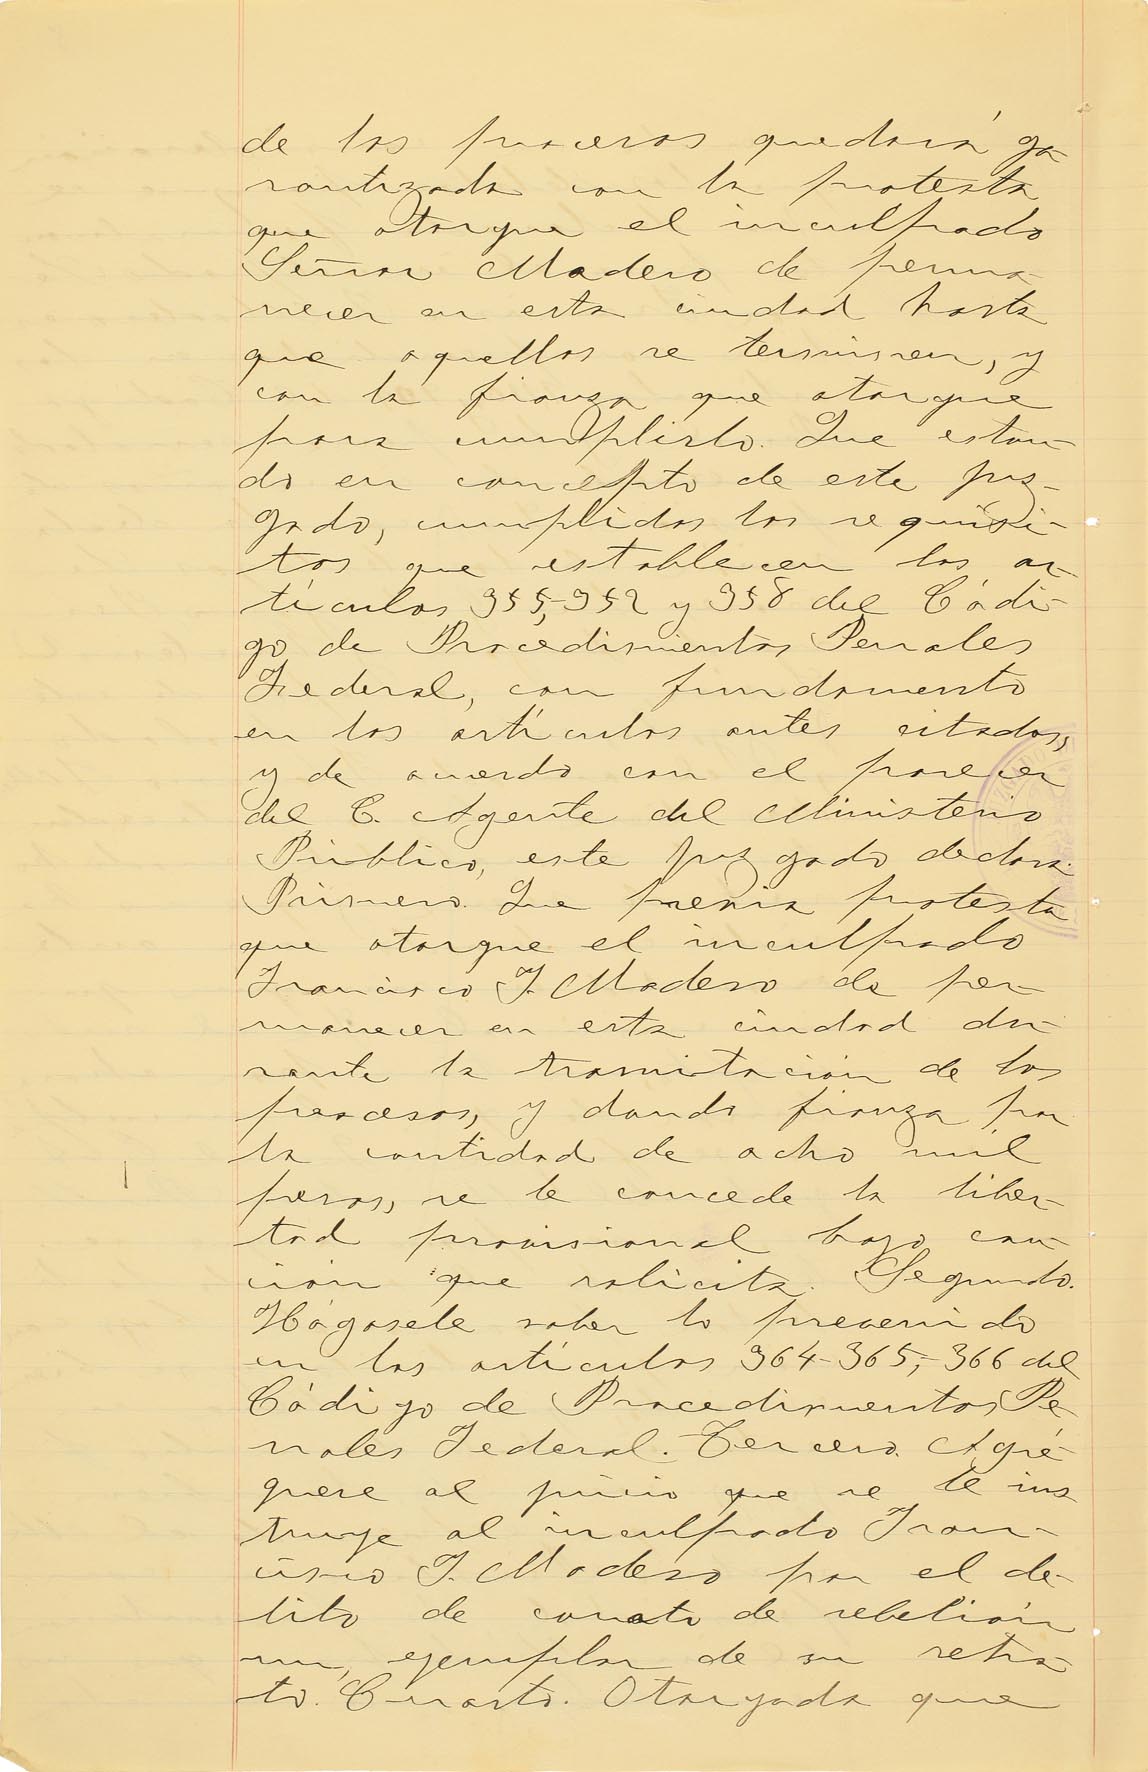 de los procesos quedará ga-
rantizada con la protesta
que otorgue el inculpado
Señor Madero de perma-
necer en esta ciudad hasta
que aquellos se terminen, y
con la fianza que otorgue
para cumplirlo. Que estan-
do en concepto de este juz-
gado, cumplidos los requisi-
tos que establecen los ar-
tículos 355,-352 y 358 del Códi-
go de Procedimientos Penales
Federal, con fundamento
en los artículos antes citados,
y de acuerdo con el parecer
del C. Agente del Ministerio
Público, este juzgado declara:
Primero. Que previa protesta
que otorgue el inculpado
Francisco I. Madero de per-
manecer en esta ciudad du-
rante la tramitación de los
procesos, y dando fianza por
la cantidad de ocho mil
pesos, se le concede la liber-
tad provisional bajo cau-
ción que solicita. Segundo.
Hágasele saber lo prevenido
en los artículos 364-365,-366 del
Código de Procedimientos Pe-
nales Federal. Tercero. Agré-
guese al juicio que se le ins
truye al inculpado Fran-
cisco I. Madero por el de-
lito de conato de rebelión
un, ejemplar de su retra-
to. Cuarto. Otorgada que